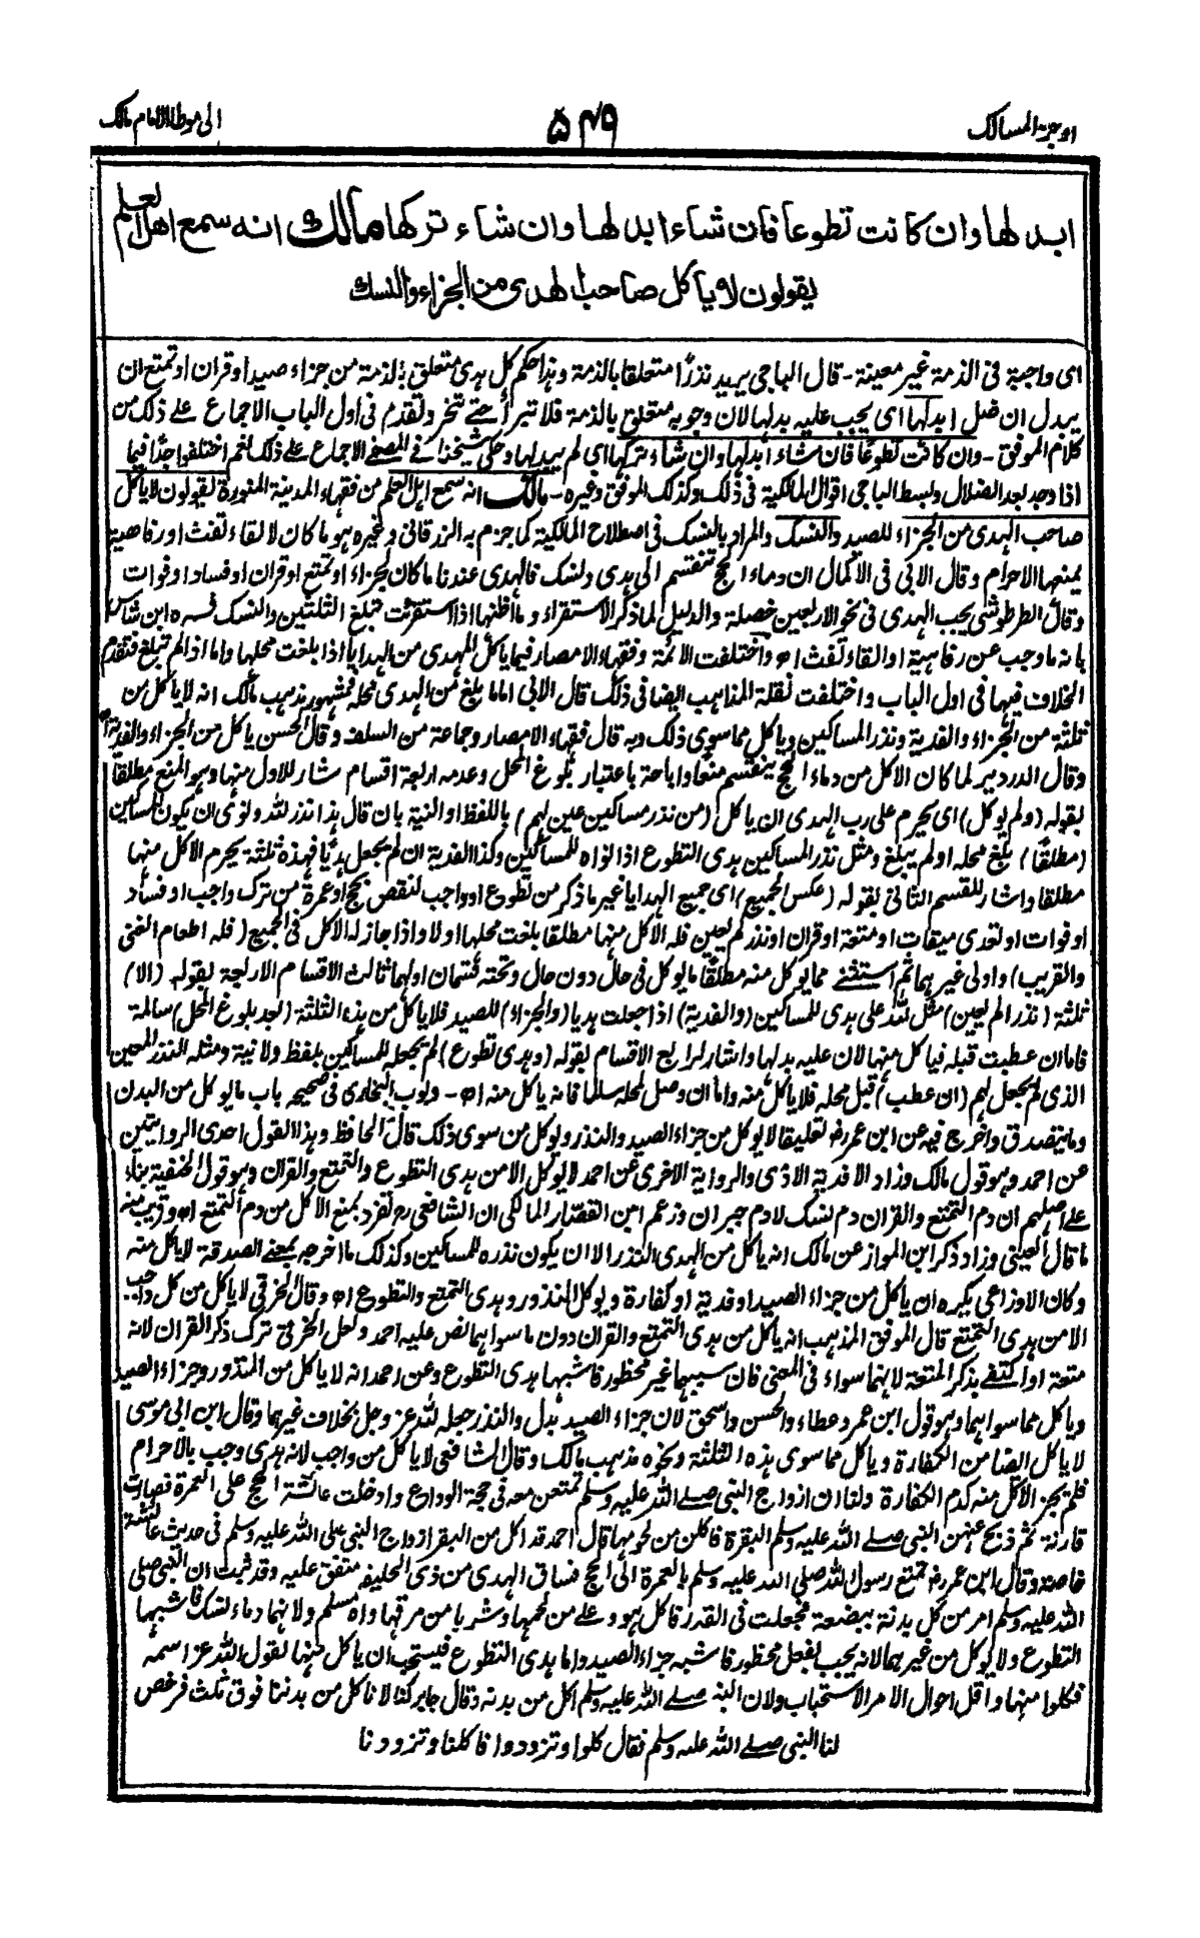 اوجز المسالك
٥٤٩
الى موطا الامام مالك
ابدلها وان كانت تطوعا فان شاء ابدلها وان شاء تركها مالك انه سمع اهل العلم
يقولون لا ياكل صاحب الهدى من الجزاء والنسك
اى واجبة فى الذمة غير معينة - قال الباجى يريد نذرًا متعلقا بالذمة وهذا حكم كل هدى متعلق بالذمة من جزاء صيد او قران او تمتع ان
يبدل ان ضل ابدلها اى يجب عليه بدلها لان وجوبه متعلق بالذمة فلا تبرأ حتے تنحر وتقدم فى اول الباب الاجماع علے ذلك من
كلام الموفق - وان كانت تطوعًا فان شاء ابدلها وان شاء تركها اى لم يبدلها وحكى شيخنا فے المصفے الاجماع علے ذلك نعم اختلفوا جدًا فيما
اذا وجد بعد الضلال وبسط الباجى اقوال المالكية فى ذلك وكذلك الموفق وغيره - مالك انه سمع اهل العلم من فقهاء المدينة المنورة يقولون لا ياكل
صاحب الهدى من الجزاء للصيد والنسك والمراد بالنسك فى اصطلاح المالكية كما جزم به الزرقانى وغيره هو ما كان لالقاء تفث او رفاهية
يمنعها الاحرام وقال الابى فى الاكمال ان دماء الحج تنقسم الى هدى ونسك فالهدى عندنا ما كان لجزاء او تمتع او قران او فساد او فوات
وقال الطرطوشى يجب الهدى فى نحو الاربعين خصلة والدليل لما ذكر الاستقراء وما اظنها اذا استقرئت تبلغ الثلثين والنسك فسره ابن شاس
بانه ما وجب عن رفاهية او القاء تفث اھ واختلفت الائمة وفقهاء الامصار فيما ياكل المهدى من الهدايا اذا بلغت محلها واما اذا لم تبلغ فتقدم
الخلاف فيها فى اول الباب واختلفت نقلة المذاهب ايضا فى ذلك قال الابى اما ما بلغ من الهدى محله فمشهور مذهب مالك انه لا ياكل من
ثلثة من الجزاء والفدية ونذر المساكين وياكل مما سوى ذلك وبه قال فقهاء الامصار وجماعة من السلف وقال الحسن ياكل من الجزاء والفدية اھ
وقال الدردير لما كان الاكل من دماء الحج ينقسم منعا واباحة باعتبار بلوغ المحل وعدمه اربعة اقسام شار للاول منها وهو المنع مطلقا
بقوله (ولم يوكل) اى يحرم على رب الهدى ان ياكل (من نذر مساكين عين لهم) باللفظ او النية بان قال هذا نذر لله ونوى ان يكون للمساكين
(مطلقًا) بلغ محله او لم يبلغ ومثل نذر المساكين هدى التطوع اذا نواه للمساكين وكذا الفدية ان لم يجعل هديا فهذه ثلثة يحرم الاكل منها
مطلقا واشار للقسم الثانى بقوله (عكس الجميع) اى جميع الهدايا غير ما ذكر من تطوع او واجب لنقص بحج او عمرة من ترك واجب او فساد
او فوات او تعدى ميقات او متعة او قران او نذر لم يعين فله الاكل منها مطلقا بلغت محلها او لا واذا جاز له الاكل فى الجميع (فله اطعام الغنى
والقريب) واولى غيرهما ثم استثنے مما يوكل منه مطلقًا ما يوكل فى حال دون حال وتحته قسمان اولهما ثالث الاقسام الاربعة بقوله (الا)
ثلثة (نذرا لم يعين) مثل لله على هدى للمساكين (والفدية) اذا جعلت هديا (والجزاء) للصيد فلا ياكل من هذه الثلثة (بعد بلوغ المحل) سالمة
فاما ان عطبت قبله فياكل منها لان عليه بدلها واشار لرابع الاقسام بقوله (وهدى تطوع) لم يجعل للمساكين بلفظ ولا نية ومثله النذر المعين
الذى لم يجعل لهم (ان عطب) قبل محله فلا ياكل منه واما ان وصل لمحله سالما فانه ياكل منه اھ - وبوب البخارى فى صحيحه باب ما يوكل من البدن
وما يتصدق واخرج فيه عن ابن عمر رض تعليقا لا يوكل من جزاء الصيد والنذر ويوكل من سوى ذلك قال الحافظ وهذا القول احدى الروايتين
عن احمد وهو قول مالك وزاد الا فدية الاذى والرواية الاخرى عن احمد لا يوكل الا من هدى التطوع والتمتع والقران وهو قول الحنفية بناء
علے اصلهم ان دم التمتع والقران دم نسك لا دم جبران وزعم ابن القصار المالكى ان الشافعى رح تفرد بمنع الاكل من دم التمتع اھ وقريب منه
ما قال العينى وزاد ذكر ابن المواز عن مالك انه ياكل من الهدى النذر الا ان يكون نذره للمساكين وكذلك ما اخرجه بمعنے الصدقة لا ياكل منه
وكان الاوزاعى يكره ان ياكل من جزاء الصيد او فدية او كفارة ويوكل المنذور وهدى التمتع والتطوع اھ وقال الخرقى لا ياكل من كل واجب
الا من هدى التمتع قال الموفق المذهب انه ياكل من هدى التمتع والقران دون ما سواهما نص عليه احمد ولعل الخرقى ترك ذكر القران لانه
متعة او اكتفے بذكر المتعة لانهما سواء فى المعنى فان سببهما غير محظور فاشبها هدى التطوع وعن احمد انه لا ياكل من المنذور وجزاء الصيد
وياكل مما سواهما وهو قول ابن عمر وعطاء والحسن واسحق لان جزاء الصيد بدل والنذر جعله لله عز وجل بخلاف غيرهما وقال ابن ابى موسى
لا ياكل ايضا من الكفارة وياكل مما سوى هذه الثلثة ونحوه مذهب مالك وقال الشافعى لا ياكل من واجب لانه هدى وجب بالاحرام
فلم يجز الاكل منه كدم الكفارة ولنا ان ازواج النبى صلے الله عليه وسلم تمتعن معه فى حجة الوداع وادخلت عائشة الحج على العمرة فصارت
قارنة ثم ذبح عنهن النبى صلے الله عليه وسلم البقرة فاكلن من لحومها قال احمد قد اكل من البقر ازواج النبى صلى الله عليه وسلم فى حديث عائشة
خاصة وقال ابن عمر رض تمتع رسول الله صلى الله عليه وسلم بالعمرة الى الحج فساق الهدى من ذى الحليفة متفق عليه وقد ثبت ان النبى صلى
الله عليه وسلم امر من كل بدنة ببضعة فجعلت فى القدر فاكل هو وعلے من لحمها وشربا من مرقها رواه مسلم ولانهما دماء نسك فاشبها
التطوع ولا يوكل من غيرهما لانه يجب بفعل محظور فاشبه جزاء الصيد واما هدى التطوع فيستحب ان ياكل منها لقول الله عز اسمه
فكلوا منها واقل احوال الامر الاستحباب ولان النبى صلے الله عليه وسلم اكل من بدنه وقال جابر كنا لا ناكل من بدننا فوق ثلث فرخص
لنا النبى صلے الله عليه وسلم فقال كلوا وتزودوا فاكلنا وتزودنا